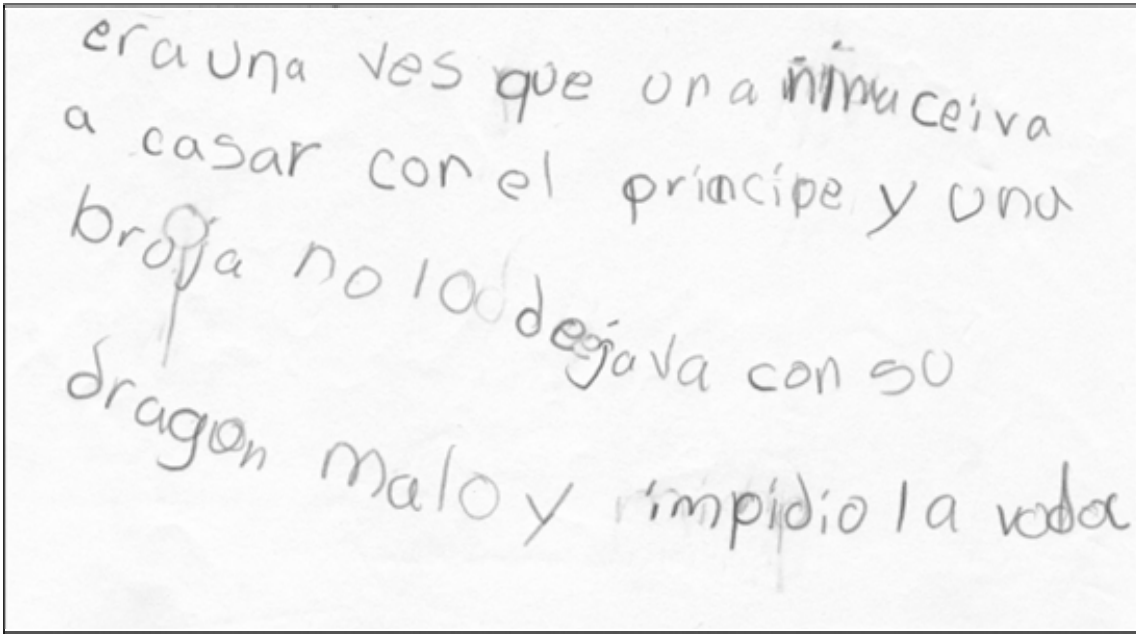 erauna ves que una niña ceiva
a casar con el principe y una
broja no lo dejava con su
dragon malo y impidio la voda